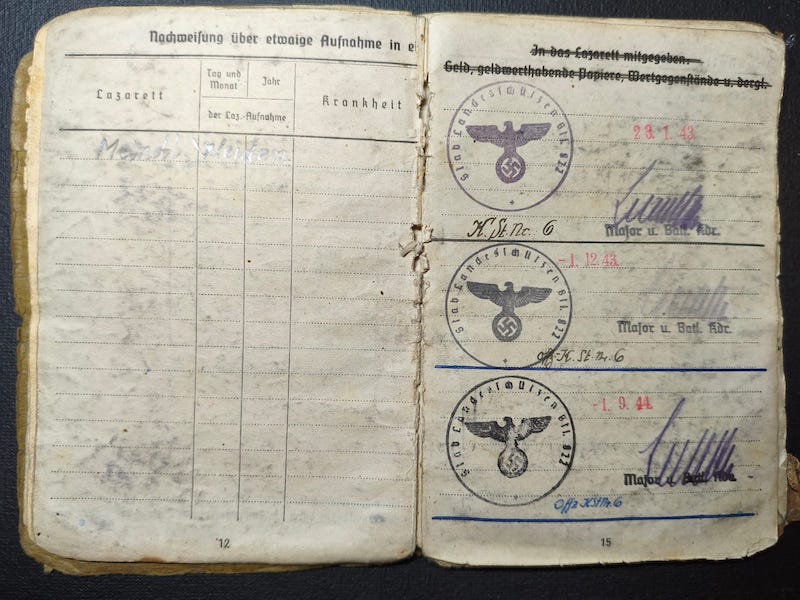 Nachweisung über etwaige Aufnahme in e
Lazarett
Tag und Monat
Jahr
der Laz.-Aufnahme
Krankheit
12
In das Lazarett mitgegeben:
Geld, geldwerthabende Papiere, Wertgegenstände u. dergl.
Stab Landesschützen Btl. 822
23. 1. 43.
K. St. Nr. 6
Major u. Batl. Kdr.
Stab Landesschützen Btl. 822
-1. 12. 43.
Off. K. St. Nr. 6
Major u. Batl. Kdr.
Stab Landesschützen Btl. 822
-1. 9. 44.
Major u. Batl. Kdr.
Offz KStNr. 6
15